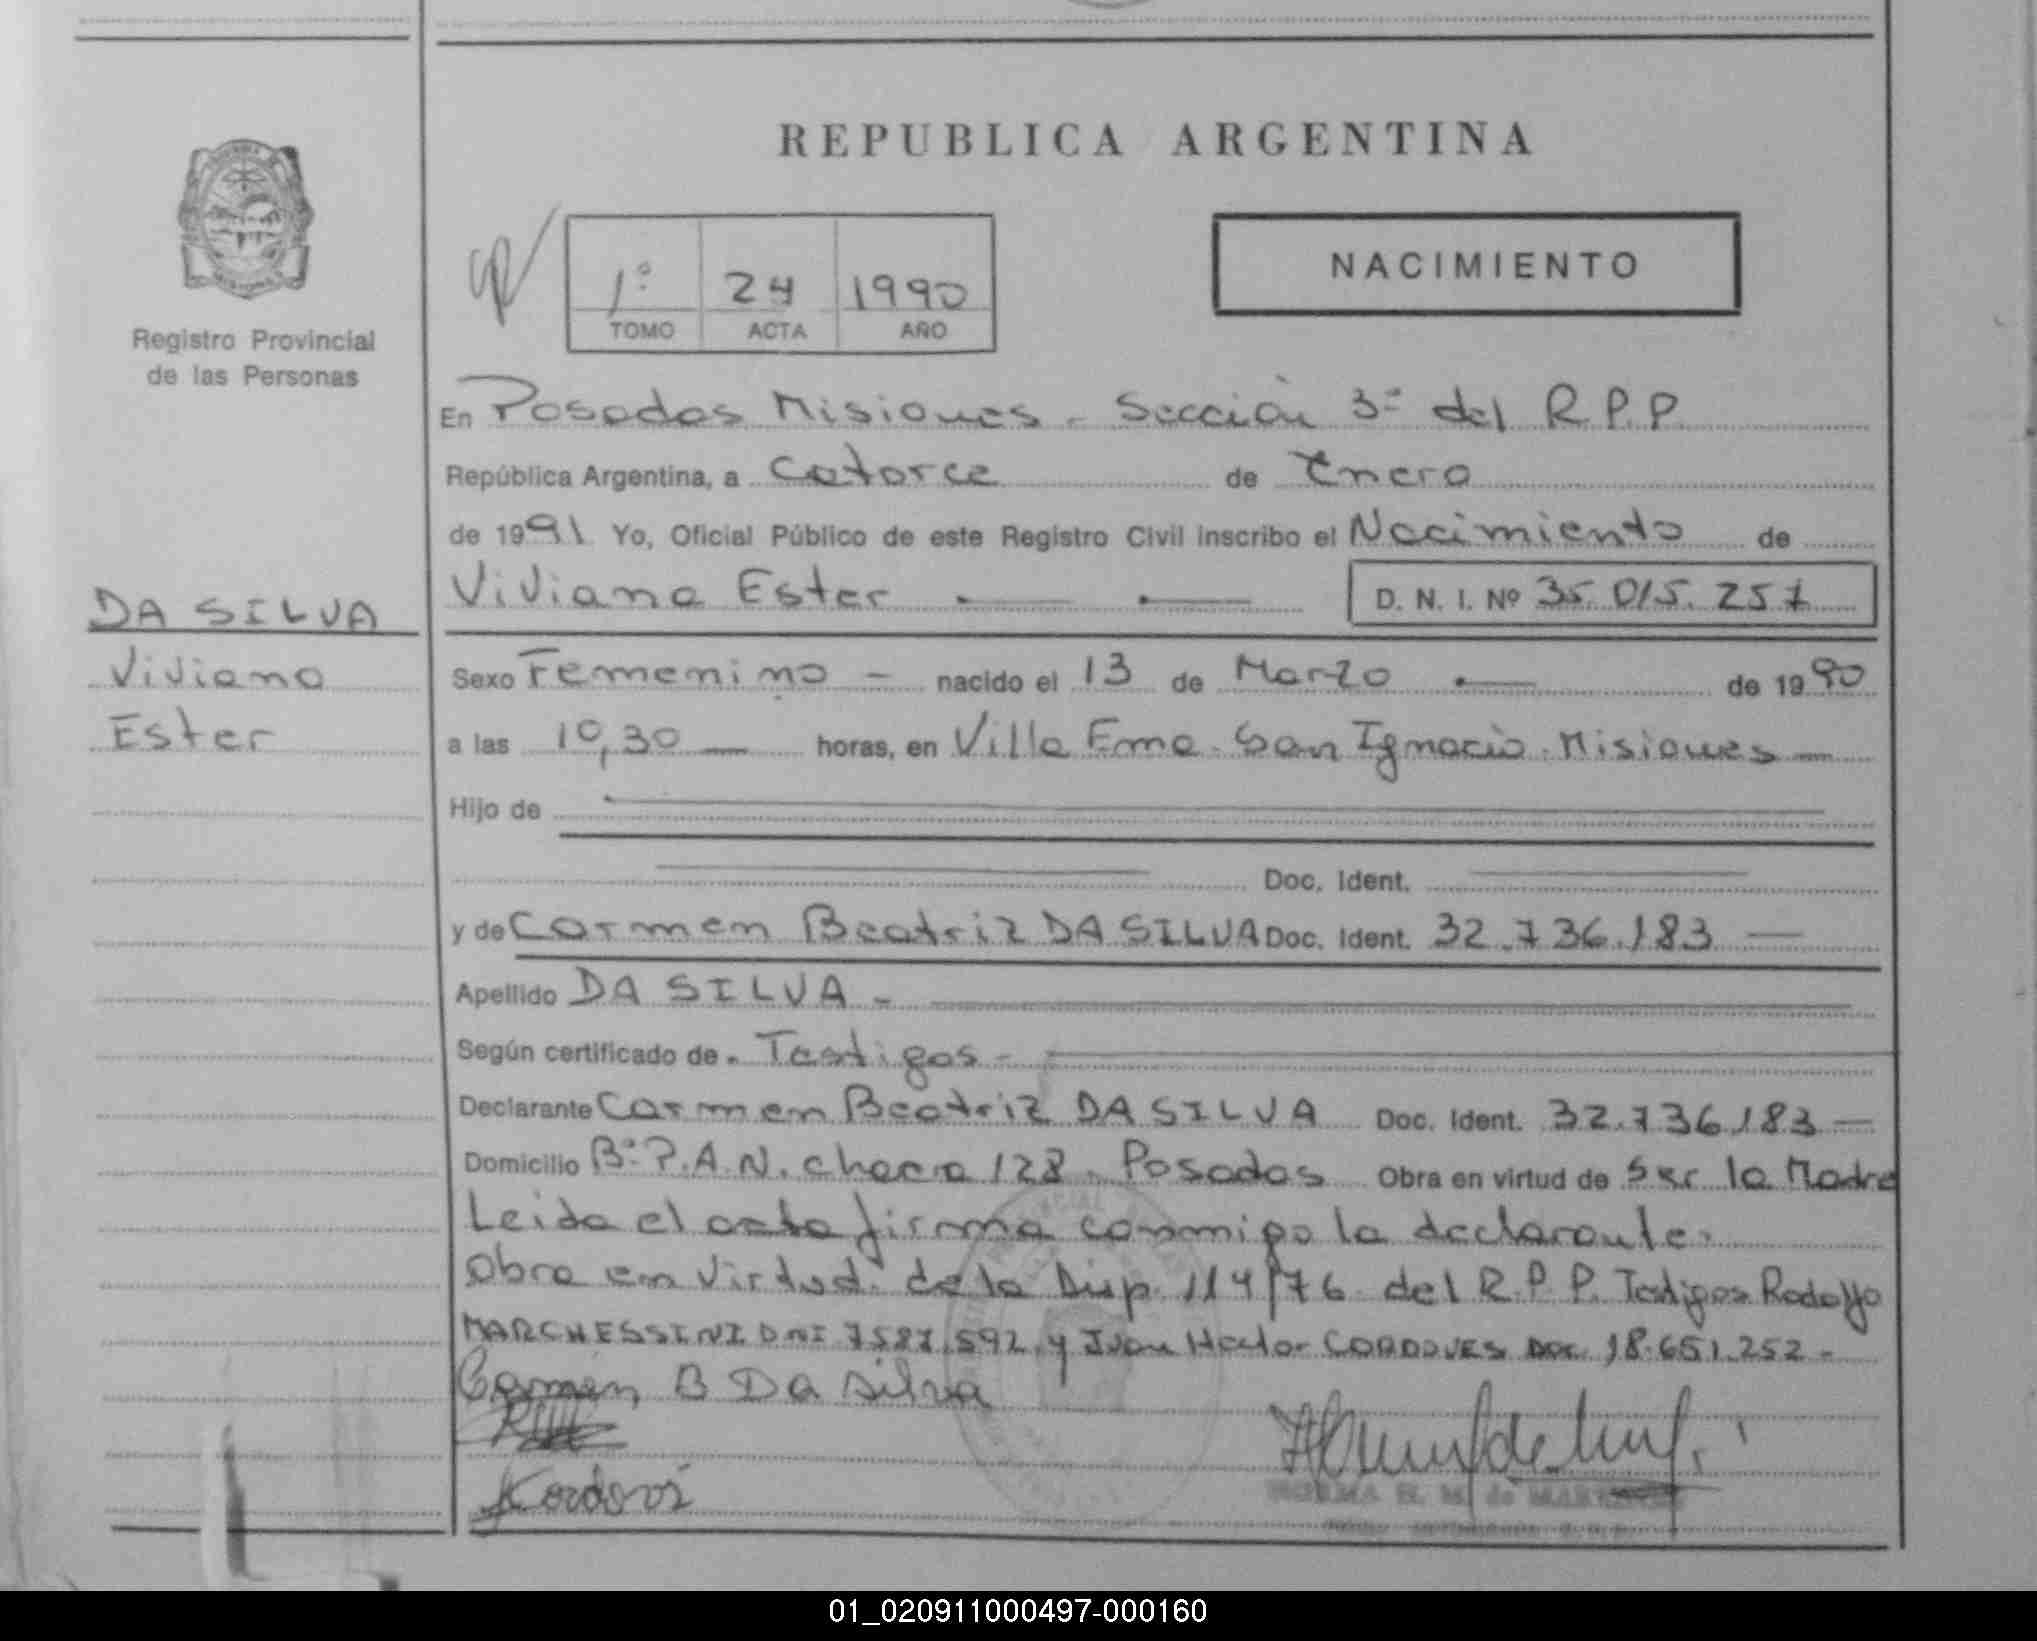 REPUBLICA ARGENTINA
Registro Provincial
de las Personas
1º 24 1990
TOMO ACTA AÑO
NACIMIENTO
En Posadas Misiones - Sección 3º del R.P.P.
República Argentina, a Catorce de Enero
de 1991 Yo, Oficial Público de este Registro Civil inscribo el Nacimiento de
Viviana Ester D. N. I. Nº 35.015.257
DA SILVA
Viviana
Ester
Sexo Femenino - nacido el 13 de Marzo de 1990
a las 10,30 horas, en Villa Ema - San Ignacio - Misiones
Hijo de
Doc. Ident.
y de Carmen Beatriz DA SILVA Doc. Ident. 32.736.183
Apellido DA SILVA -
Según certificado de Testigos -
Declarante Carmen Beatriz DA SILVA Doc. Ident. 32.736.183
Domicilio Bº P.A.N. chacra 128 - Posadas Obra en virtud de Ser la Madre
Leida el acta firma conmigo la declarante.
Obra en virtud de la Disp. 114/76 del R.P.P. Testigos Rodolfo
MARCHESSINI DNI 7587.592 y Juan Hector CORDOVES DOC. 18.651.252 -
Carmen B Da silva
01_020911000497-000160